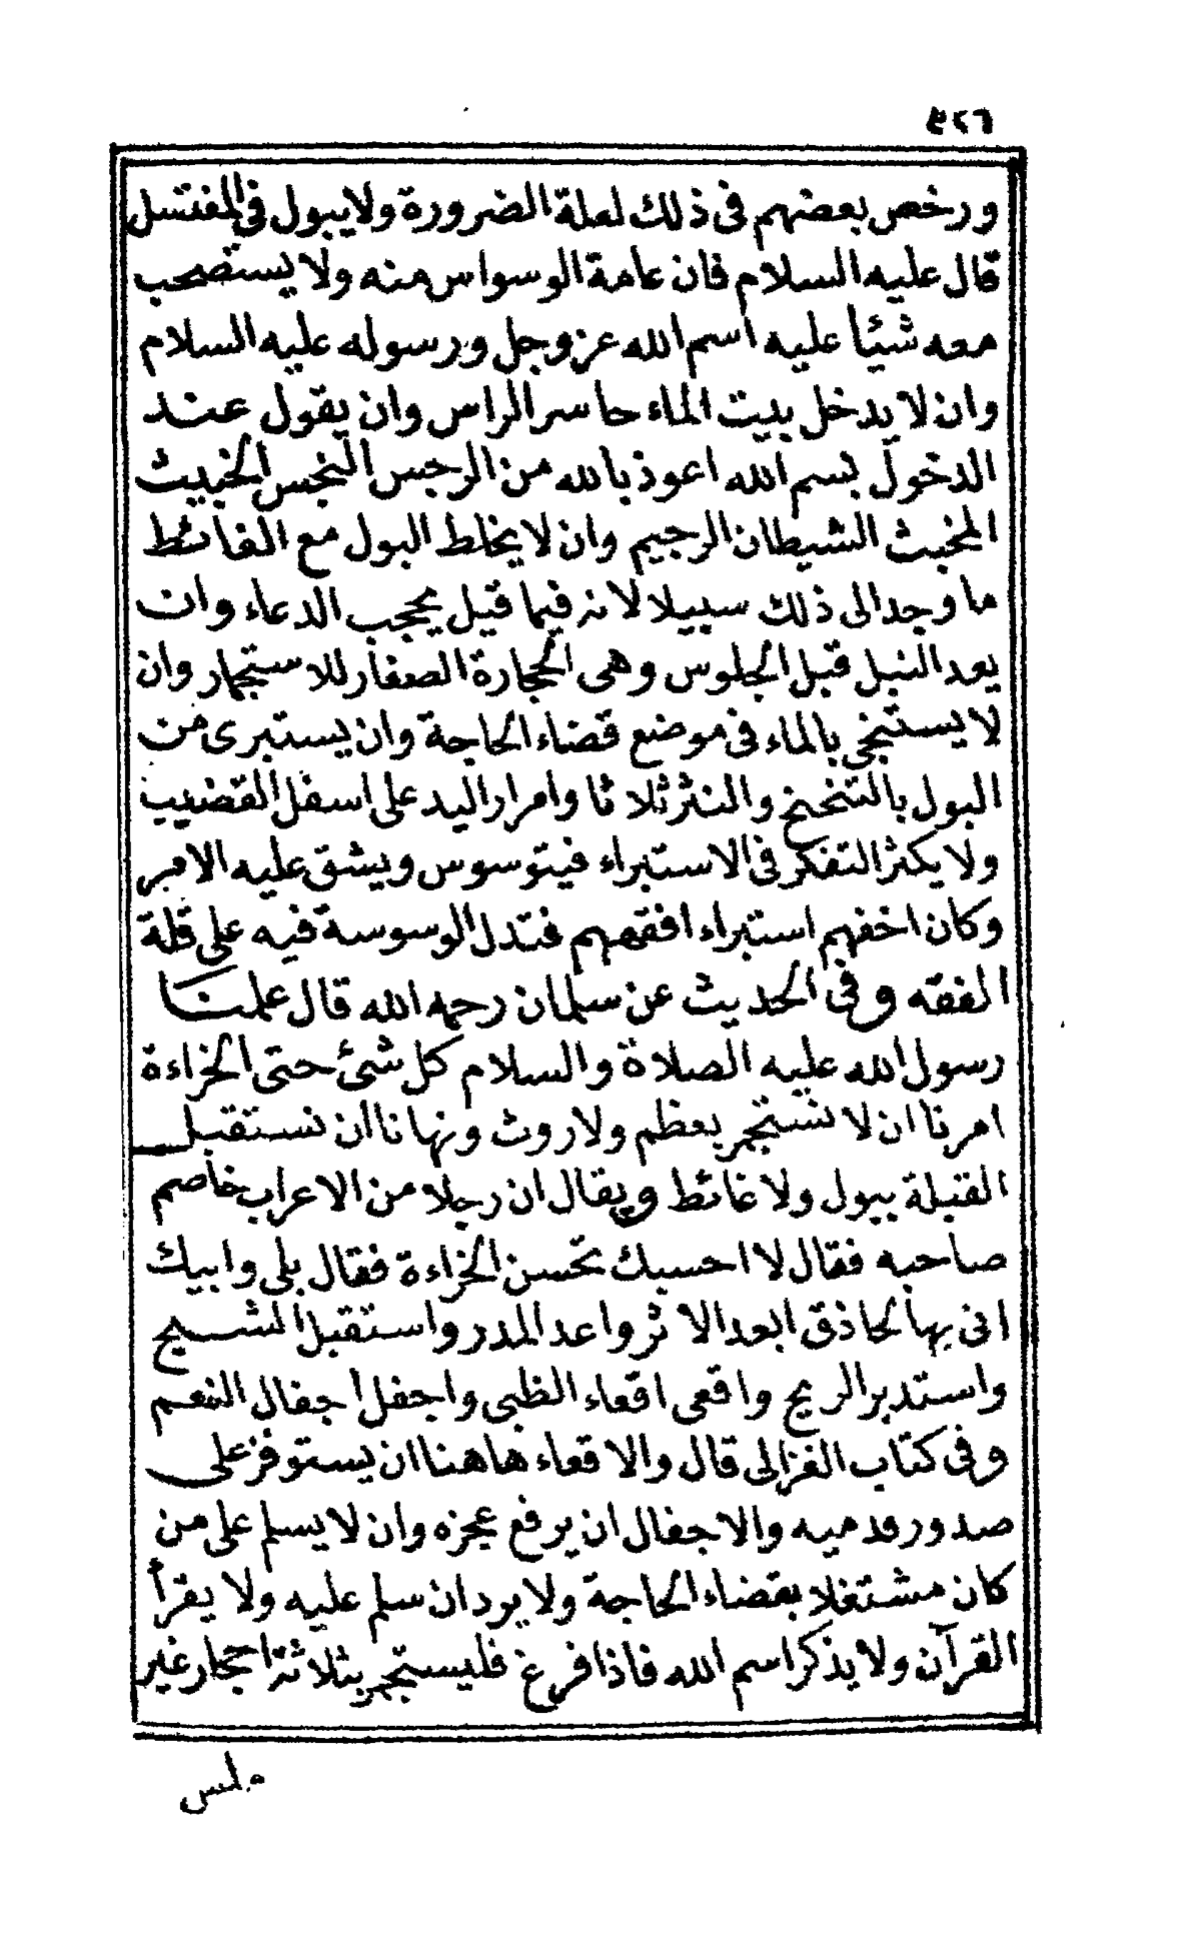 ٥٢٦
ورخص بعضهم فى ذلك لعلة الضرورة ولايبول فى المغتسل
قال عليه السلام فان عامة الوسواس منه ولا يستصحب
معه شيئا عليه اسم الله عز وجل ورسوله عليه السلام
وان لا يدخل بيت الماء حاسر الراس وان يقول عند
الدخول بسم الله اعوذ بالله من الرجس النجس الخبيث
المخبث الشيطان الرجيم وان لا يخلط البول مع الغائط
ما وجد الى ذلك سبيلا لانه فيما قيل يحجب الدعاء وان
يعد النبل قبل الجلوس وهى الحجارة الصغار للاستجمار وان
لا يستنجى بالماء فى موضع قضاء الحاجة وان يستبرى من
البول بالتنحنح والنتر ثلاثا وامرار اليد على اسفل القضيب
ولا يكثر التفكر فى الاستبراء فيتوسوس ويشق عليه الامر
وكان اخفهم استبراء افقههم فتدل الوسوسة فيه على قلة
الفقه وفى الحديث عن سلمان رحمه الله قال علمنا
رسول الله عليه الصلاة والسلام كل شئ حتى الخراءة
امرنا ان لا نستجمر بعظم ولا روث ونهانا ان نستقبل
القبلة ببول ولا غائط ويقال ان رجلا من الاعراب خاصم
صاحبه فقال لا احسبك تحسن الخراءة فقال بلى وابيك
انى بها لحاذق ابعد الاثر واعد المدر واستقبل الشيح
واستدبر الريح واقعى اقعاء الظبى واجفل اجفال النعم
وفى كتاب الغزالى قال والاقعاء هاهنا ان يستوفز على
صدور قدميه والاجفال ان يرفع عجزه وان لا يسلم على من
كان مشتغلا بقضاء الحاجة ولا يرد ان سلم عليه ولا يقرأ
القرآن ولا يذكر اسم الله فاذا فرغ فليستجمر بثلاثة احجار غير